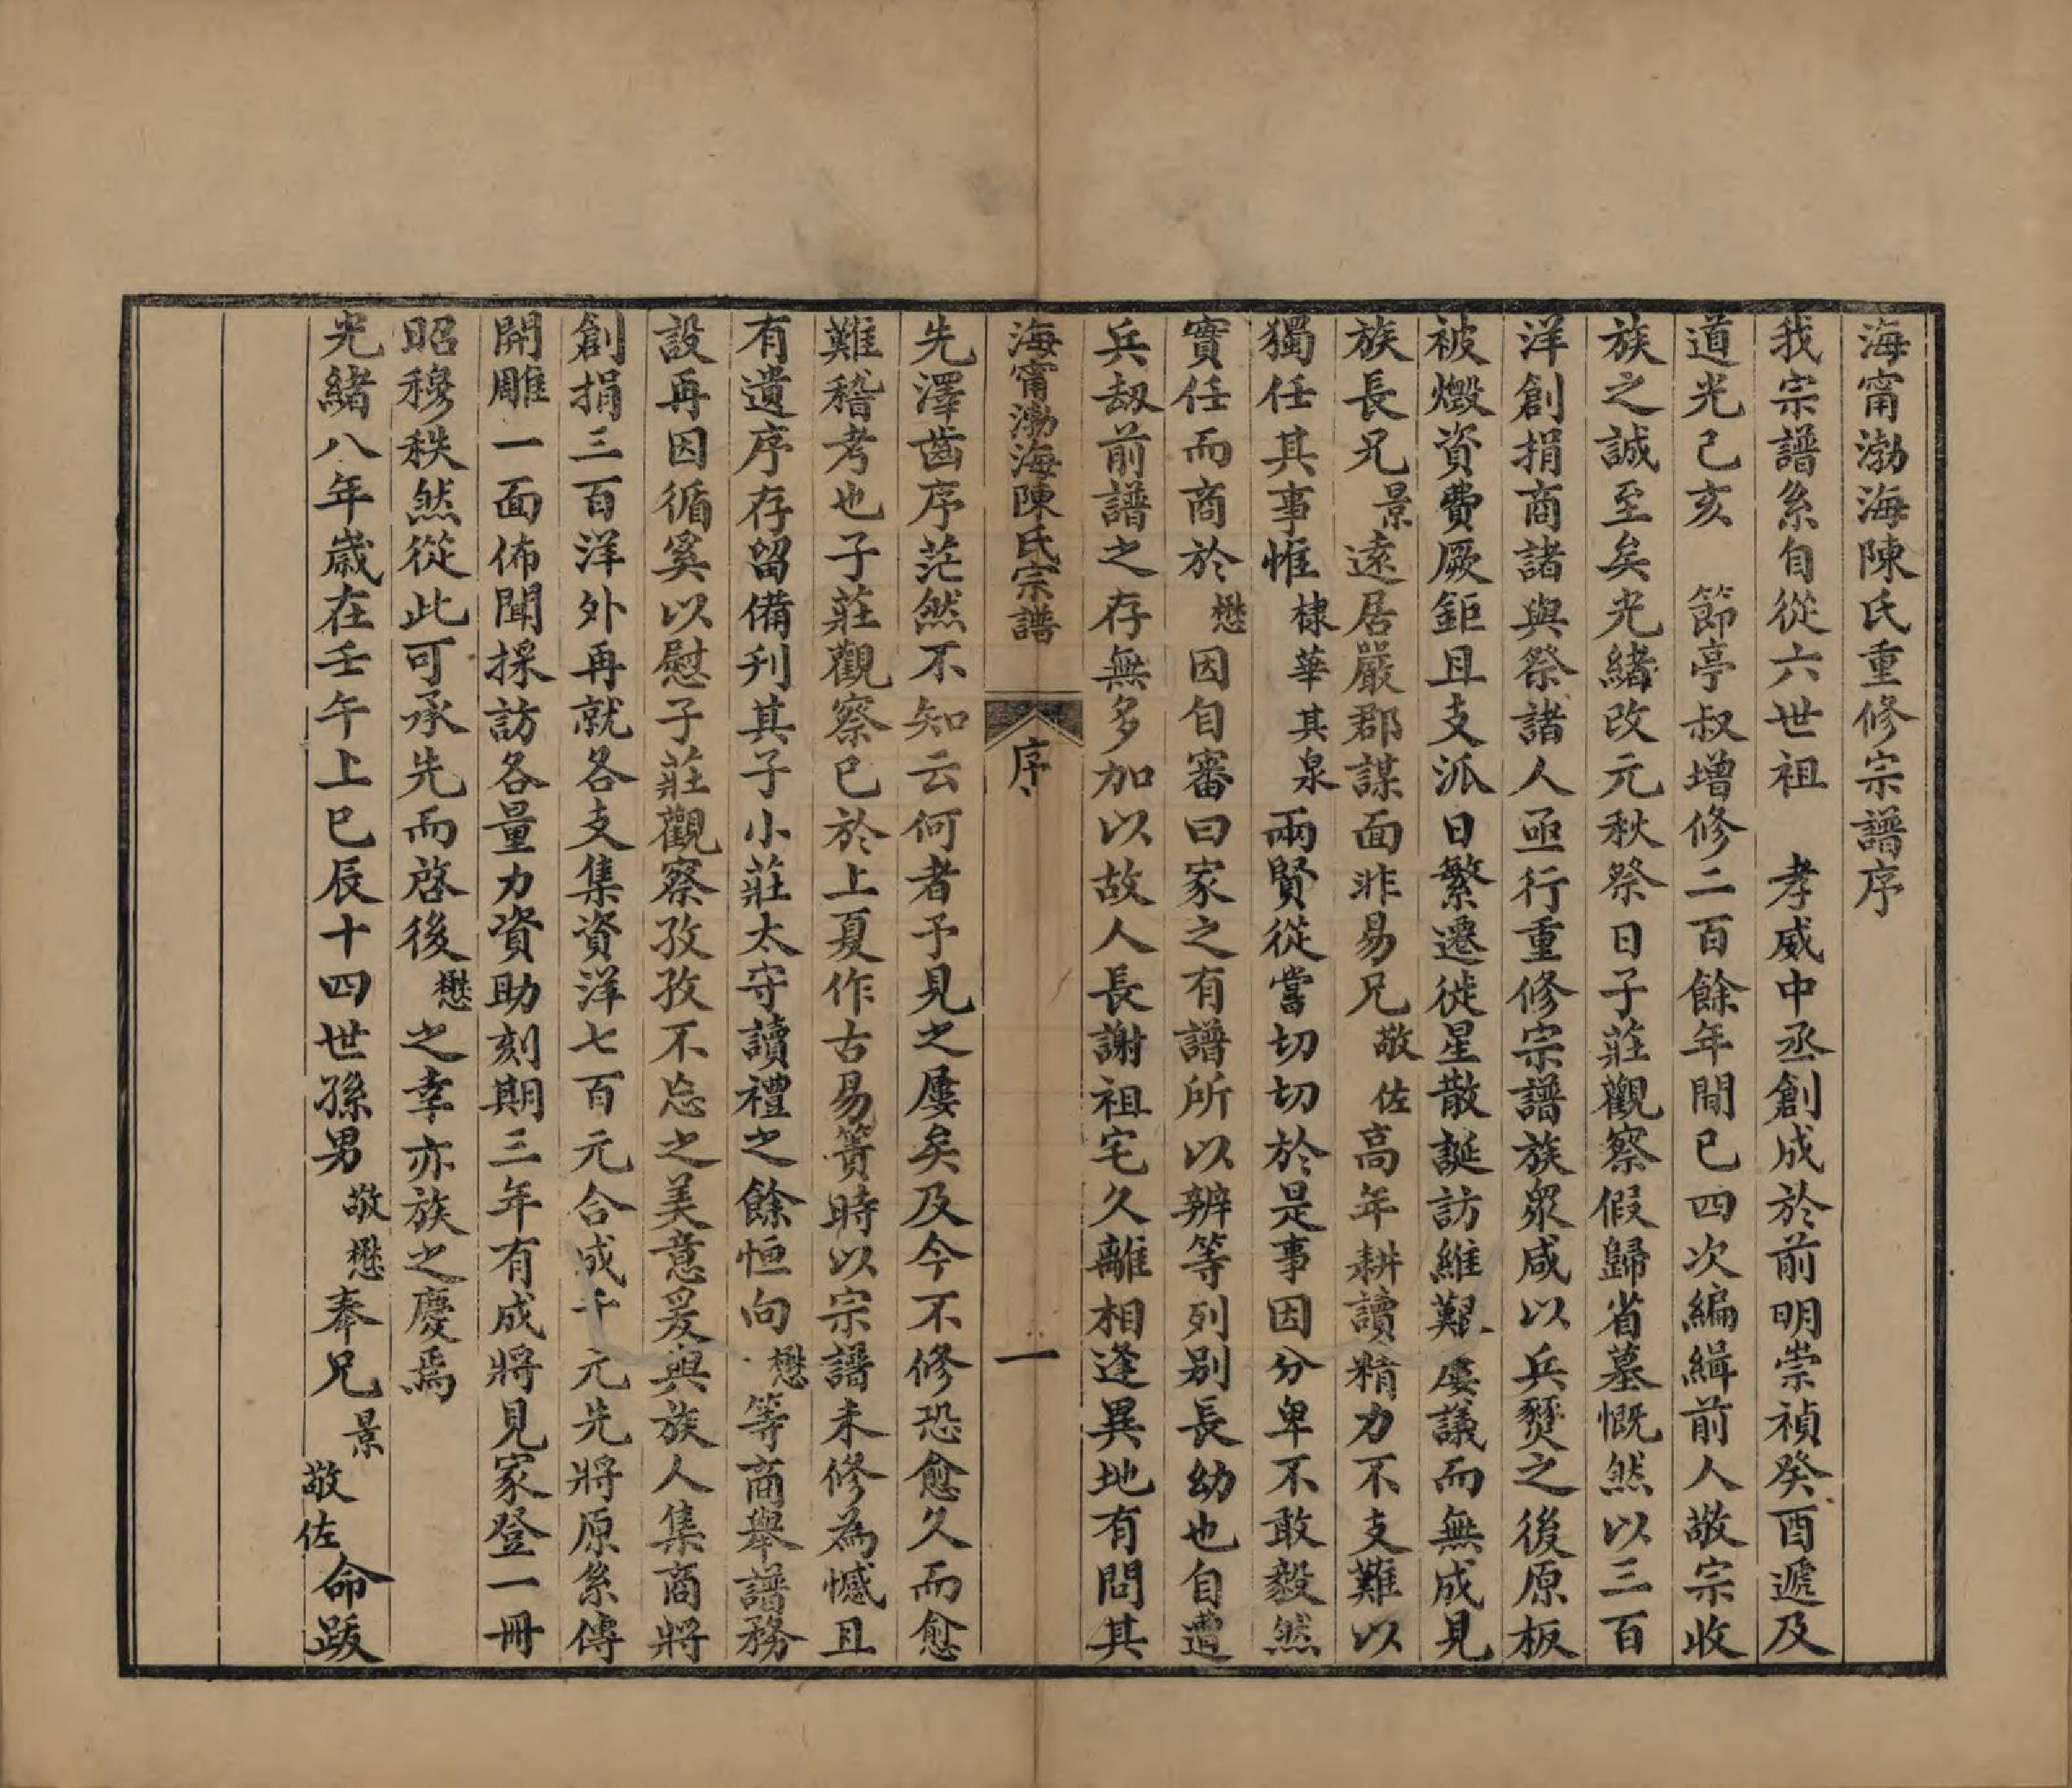 海甯渤海陳氏重修宗譜序
我宗譜系自從六世祖　孝威中丞創成於前明崇禎癸酉遞及
道光己亥　節亭叔增修二百餘年間已四次編緝前人敬宗收
族之誠至矣光緒改元秋祭日子莊觀察假歸省墓慨然以三百
洋創捐商諸與祭諸人亟行重修宗譜族衆咸以兵燹之後原板
被燬資費厥鉅且支派日繁遷徙星散誕訪維艱屢議而無成見
族長兄景遠居嚴郡謀面非易兄敬佐高年耕讀精力不支難以
獨任其事惟棣華其泉兩賢從嘗切切於是事因分卑不敢毅然
實任而商於懋因自審曰家之有譜所以辨等列别長幼也自遭
兵刼前譜之存無多加以故人長謝祖宅久離相逢異地有問其
海甯渤海陳氏宗譜　序　一
先澤齒序茫然不知云何者予見之屢矣及今不修恐愈久而愈
難稽考也子莊觀察已於上夏作古易簀時以宗譜未修為憾且
有遺序存留備刋其子小莊太守讀禮之餘恒向懋等商舉譜務
設再因循奚以慰子莊觀察孜孜不忘之美意爰與族人集商將
創捐三百洋外再就各支集資洋七百元合成千元先將原系傳
開雕一面佈聞採訪各量力資助刻期三年有成將見家登一冊
昭穆秩然從此可承先而啓後懋之幸亦族之慶焉
光緒八年歲在壬午上巳辰十四世孫男敬懋奉兄景敬佐命跋